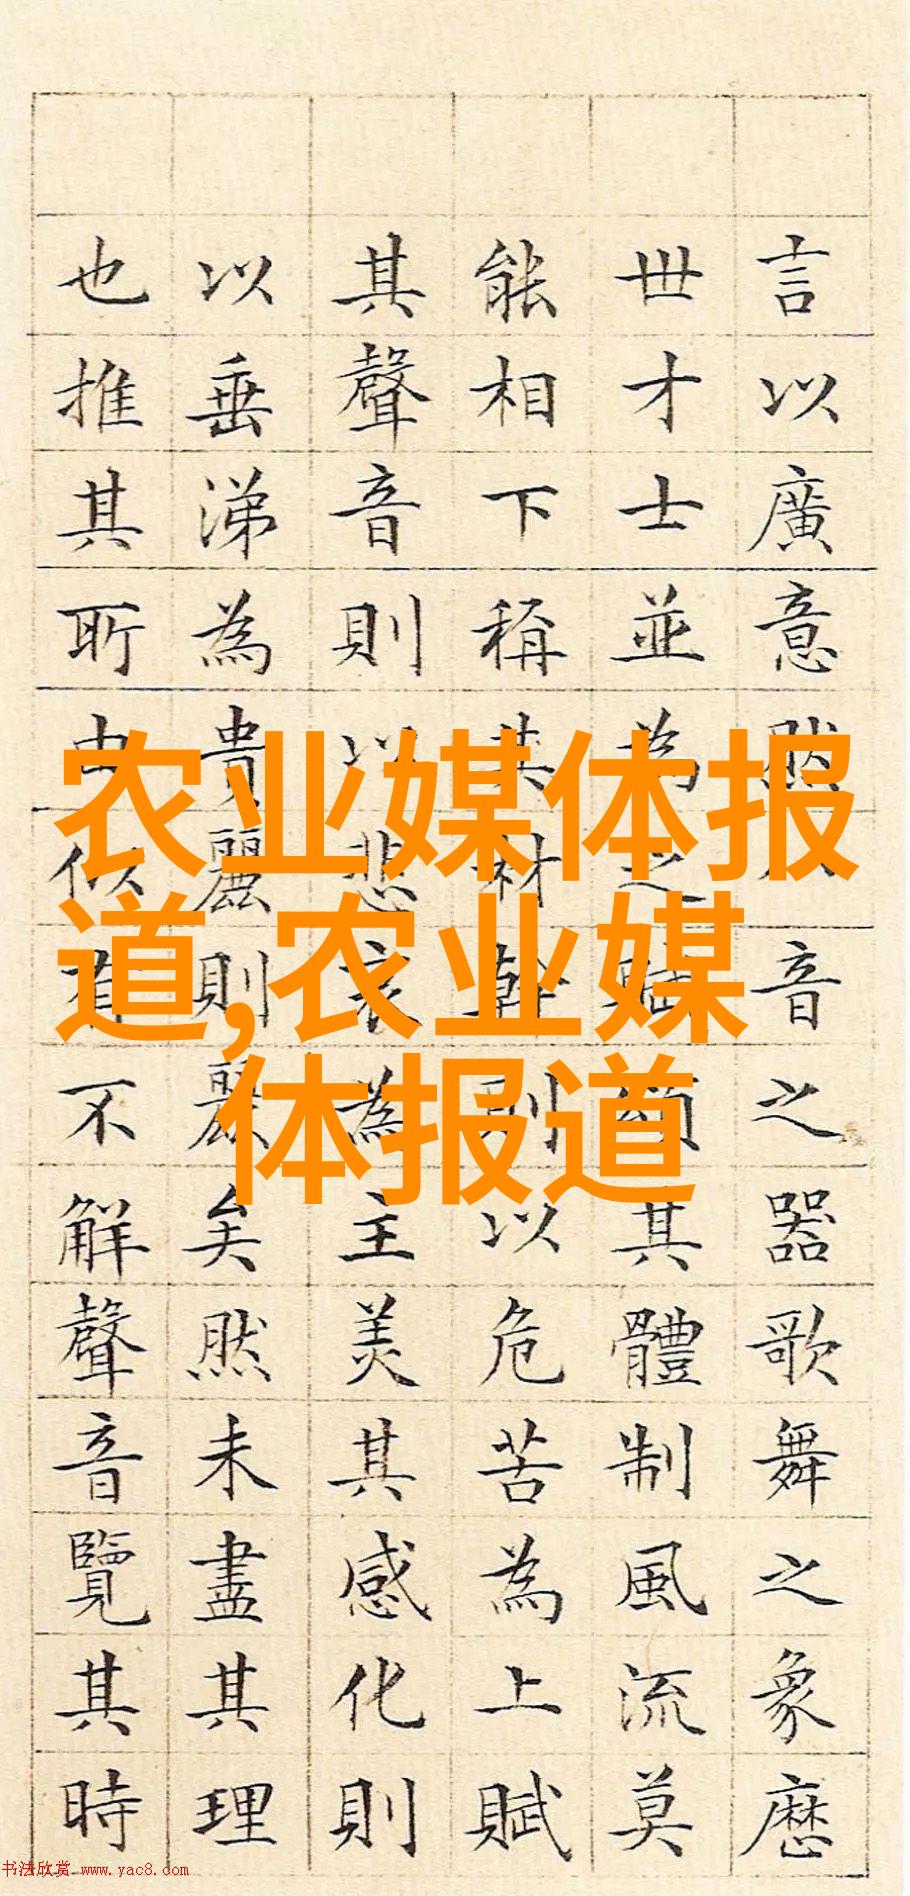 言以廣意然音之器歌舞之象歷
世才士並為之賦頌其體制風流莫
能相下稱其材幹則以危苦為上賦
其聲音則以悲哀為主美其感化則
以垂涕為貴麗則麗矣然未盡其理
也推其所由似不解聲音覽其時
农业媒体报
道,农业媒
体报道
书法欣赏 www.yac8.com